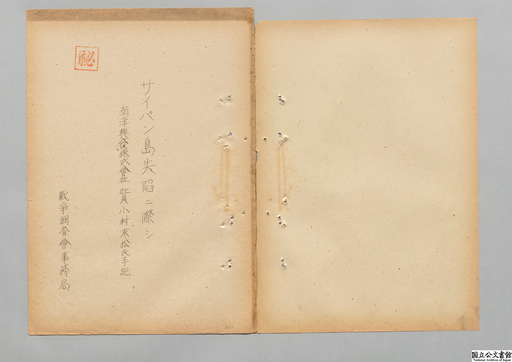 秘
サイパン島失陥ニ際シ
南洋興發株式會社社員小村末松氏手記
戰爭調査會事務局
国立公文書館
National Archives of Japan